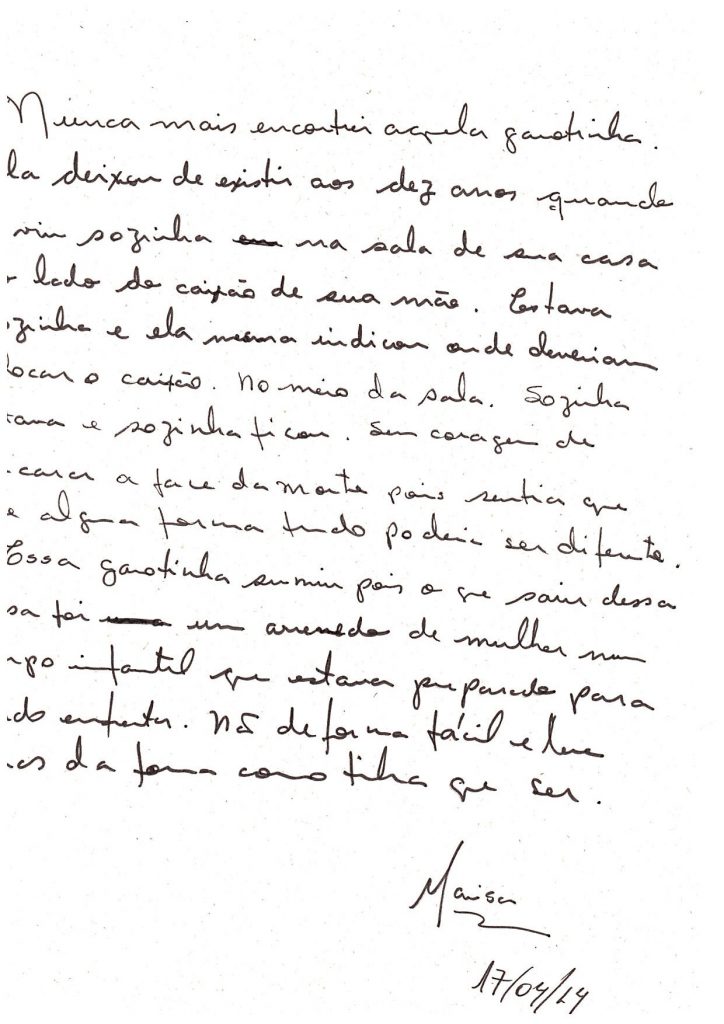 Nunca mais encontrei aquela garotinha.
la deixou de existir aos dez anos quando
viu sozinha na sala de sua casa
lado do caixão de sua mãe. Estava
zinha e ela mesma indicou onde deveriam
locar o caixão. No meio da sala. Sozinha
tava e sozinha ficou. Sem coragem de
carar a face da morte pois sentia que
e alguma forma tudo poderia ser diferente.
Essa garotinha sumiu pois o que saiu dessa
sa foi um arremedo de mulher num
rpo infantil que estava preparado para
udo enfrentar. Não de forma fácil e leve
as da forma como tinha que ser.
Maisa
17/04/14